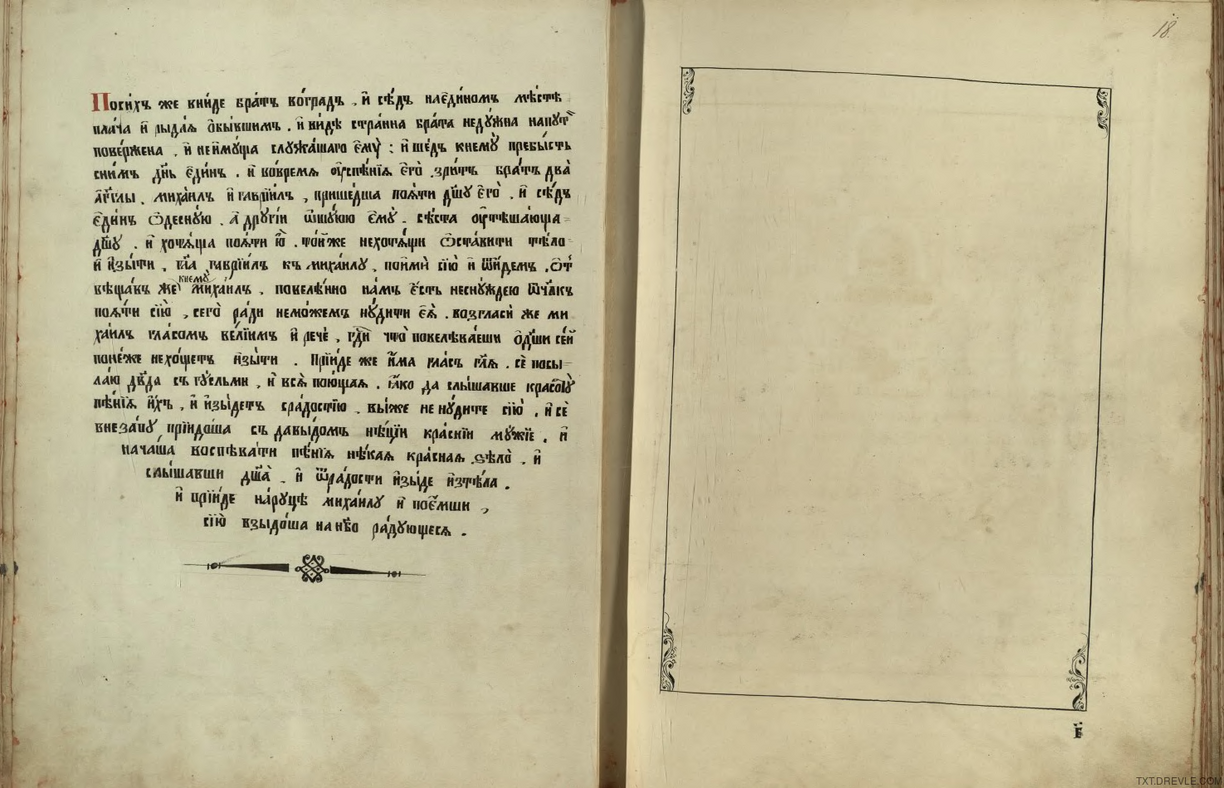 Посих̾ъ же вни́де бра́тъ во́градъ , и҆ сѣ́дъ наеди́номъ мѣ́стѣ
пла́ча и҆ рыда́ѧ ѻ҆бы́вшимъ . и҆ ви́дѣ стра́нна бра́та неду́жна напут҆ѝ
пове́ржена . и҆ неиму́ща служа́щаго є҆мꙋ̀ : и҆ ше́дъ кнемꙋ̀ пребы́сть
сни́мъ дн҃ь є҆ди́нъ . и҆ во́времѧ ᲂу҆спе́нїѧ є҆гѡ̀ . зри́тъ бра́тъ два̀
а҆́гг҃лы . михаи́лъ и҆ гаврїи́лъ , прише́дша поѧ́ти дш҃у є҆гѡ̀ . и҆ сѣ́дъ
є҆ди́нъ ѽдесну́ю . а҆ други́и ѿшу́юю є҆мꙋ̀ . сѣ́ста ᲂу҆тѣша́юща
дш҃у . и҆ хотѧ́ща поѧ́ти ю҆̀ . то́йже нехотѧ́щи ѽста́вити тѣ́ло
и҆ и҆зы́ти . гл҃а гаврїи́лъ къ михаи́лу . поимѝ сїю̀ и҆ ѿи́демъ . ѿ
вѣща́въ же кнему̀ михаи́лъ . повеле́нно на́мъ є҆́сть неснꙋ́ждею ѿч҃лкъ
поѧ́ти сїю̀ , сего̀ ра́ди немо́жемъ ну́дити є҆ѧ̀ . возгласи́ же ми
хаи́лъ гла́сомъ ве́лїимъ и҆ речѐ , гд҃и что̀ повелѣва́еши ѻ҆дш҃и се́й
поне́же нехо́щетъ и҆зы́ти . Прїи́де же и҆́ма гла́съ гл҃ѧ . сѐ посы
ла́ю дв҃да съ гу́сльми , и҆ всѧ̀ пою́щаѧ . ꙗ҆́ко да слы́шавше красоту̀
пѣ́нїѧ и҆́хъ , и҆ и҆зы́детъ сра́достїю . вы́же не ну́дите сїю̀ . и҆ сѐ
внеза́пу прїидо́ша съ давы́домъ нѣ́цїи кра́снїи му́жїе . и҆
нача́ша воспѣва́ти пѣ́нїѧ нѣ́каѧ кра́снаѧ ѕѣлѡ̀ . и҆
слы́шавши дш҃а̀ . и҆ ѿра́дости и҆зы́де и҆зтѣ́ла .
и҆ прїи́де на́руцѣ михаи́лу и҆ пое́мши ,
сїю̀ взыдо́ша на нб҃о ра́дующесѧ .
18.
в҃
TXT.DREVLE.COM